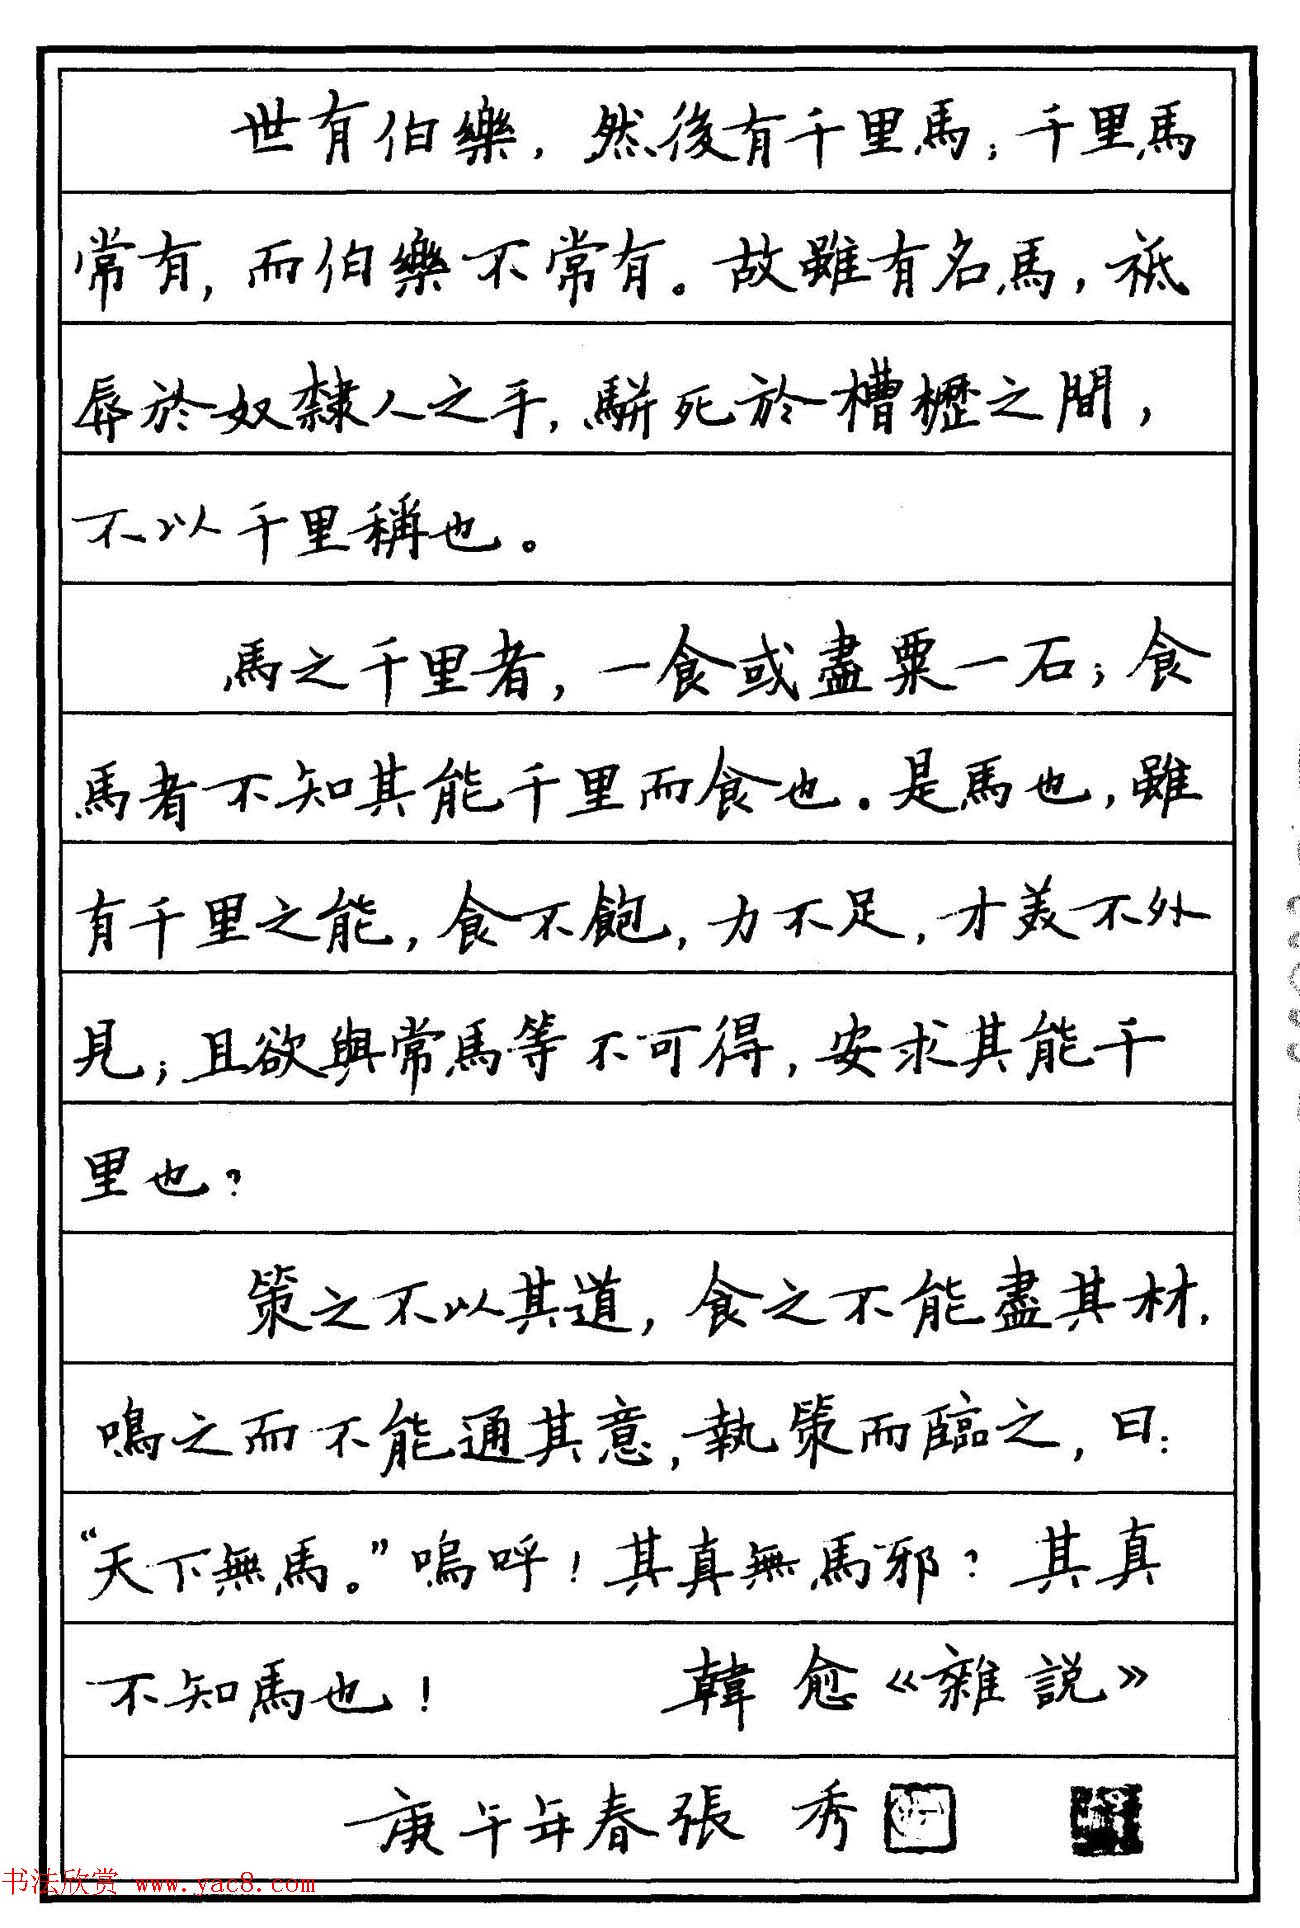 世有伯樂，然後有千里馬；千里馬
常有，而伯樂不常有。故雖有名馬，祗
辱於奴隸人之手，駢死於槽櫪之間，
不以千里稱也。
馬之千里者，一食或盡粟一石；食
馬者不知其能千里而食也。是馬也，雖
有千里之能，食不飽，力不足，才美不外
見；且欲與常馬等不可得，安求其能千
里也？
策之不以其道，食之不能盡其材，
鳴之而不能通其意，執策而臨之，曰：
“天下無馬。”嗚呼！其真無馬邪？其真
不知馬也！ 韓愈《雜説》
庚午年春張秀
书法欣赏 www.yac8.com